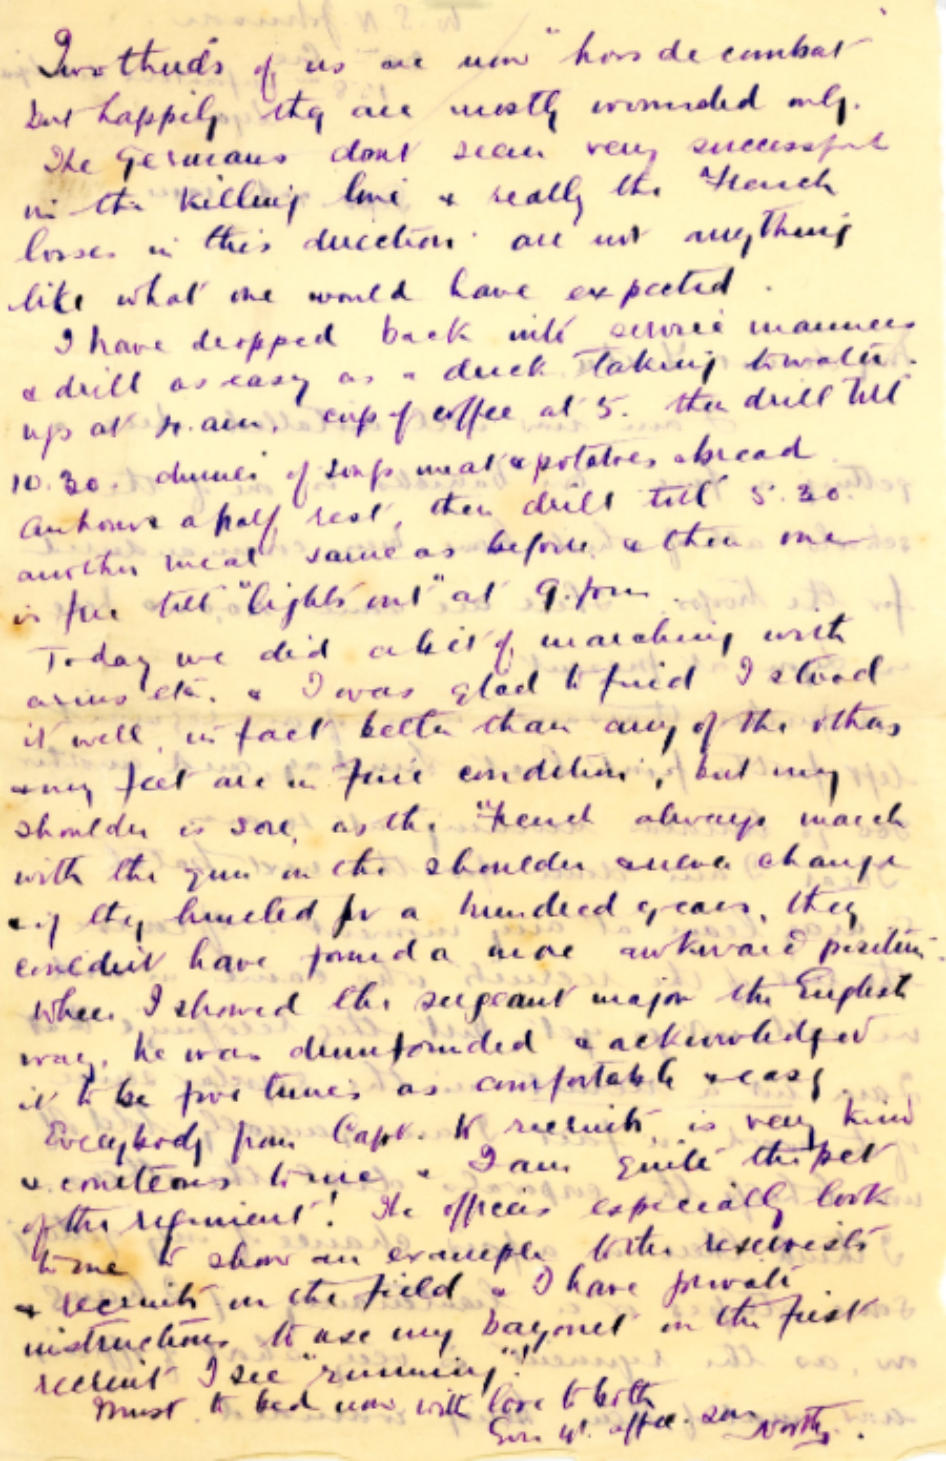 Two thirds of us are now "hors de combat
but happily they are mostly wounded only.
The Germans dont seem very successful
in the killing line & really the French
losses in this direction are not anything
like what one would have expected.
I have dropped back into service manners
& drill as easy as a duck taking to water.
up at 4. am. cup of coffee at 5. then drill till
10.30. dinner of soup meat & potatoes & bread
an hour & a half rest, then drill till 5.30.
another meal same as before & then one
is free till "lights out" at 9. pm.
Today we did a bit of marching with
arms etc. & I was glad to find I stood
it well, in fact better than any of the others
& my feet are in fine condition, but my
shoulder is sore, as the French always march
with the gun on the shoulder & never change
& if they hunted for a hundred years, they
couldn't have found a more awkward position.
When I showed the sergeant major the English
way, he was dumfounded & acknowledged
it to be five times as comfortable & easy.
Everybody from Capt. to recruits is very kind
& courteous to me & I am quite the pet
of the regiment! The officers especially look
to me to show an example to the reservists
& recruits on the field & I have private
instructions to use my bayonet on the first
recruit I see "running"!
Must to bed now, with love to both
affec. son